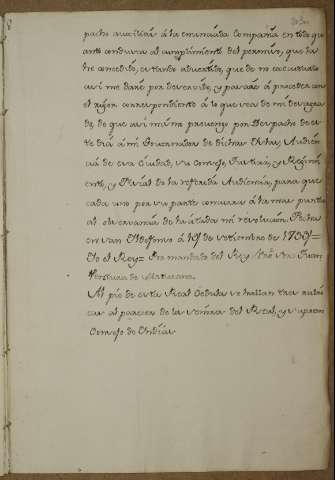 pacho auxiliár á la enunciada Compañia en todo qu
anto conduzca al cumplimiento del permiso, que la
he concedido, estando advertido, que de no executarlo
assi me daré por deservido, y passaré á proceder con
el rigor correspondiente á lo que sea de mi desagra
do, de que assi mismo prevengo por Despacho de es
te dia á mi Governador de dichas Islas, Audien
cia de essa Ciudad, su Consejo, Justicia, y Regimi
ento, y Fiscál de la referida Audiencia, para que
cada uno por su parte concurra á la mas puntu
al observancia de la citada mi resolucion. Fecha
en San Ildefonso á de de 1733 =
Yo el Rey = Por mandado del Rey Juan
Ventura de Maturana.
Al pie de esta Real Cedula se hallan tres rubri
cas al parecer de los Señores del Real, y supremo
Consejo de Indias